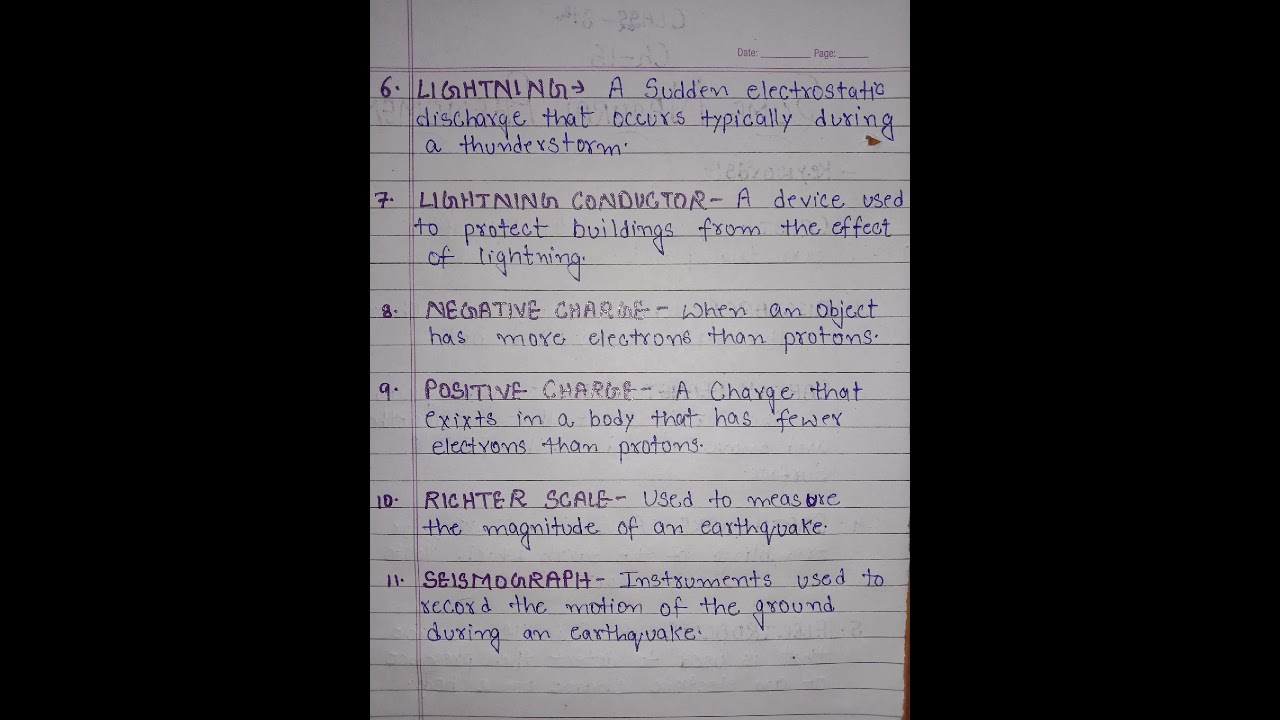 Date: ________ Page: _____
6. LIGHTNING→ A Sudden electrostatic
discharge that occurs typically during
a thunderstorm.
7. LIGHTNING CONDUCTOR- A device used
to protect buildings from the effect
of lightning.
8. NEGATIVE CHARGE - When an object
has more electrons than protons.
9. POSITIVE CHARGE- A Charge that
exixts in a body that has fewer
electrons than protons.
10. RICHTER SCALE- Used to measure
the magnitude of an earthquake.
11. SEISMOGRAPH- Instruments used to
record the motion of the ground
during an earthquake.